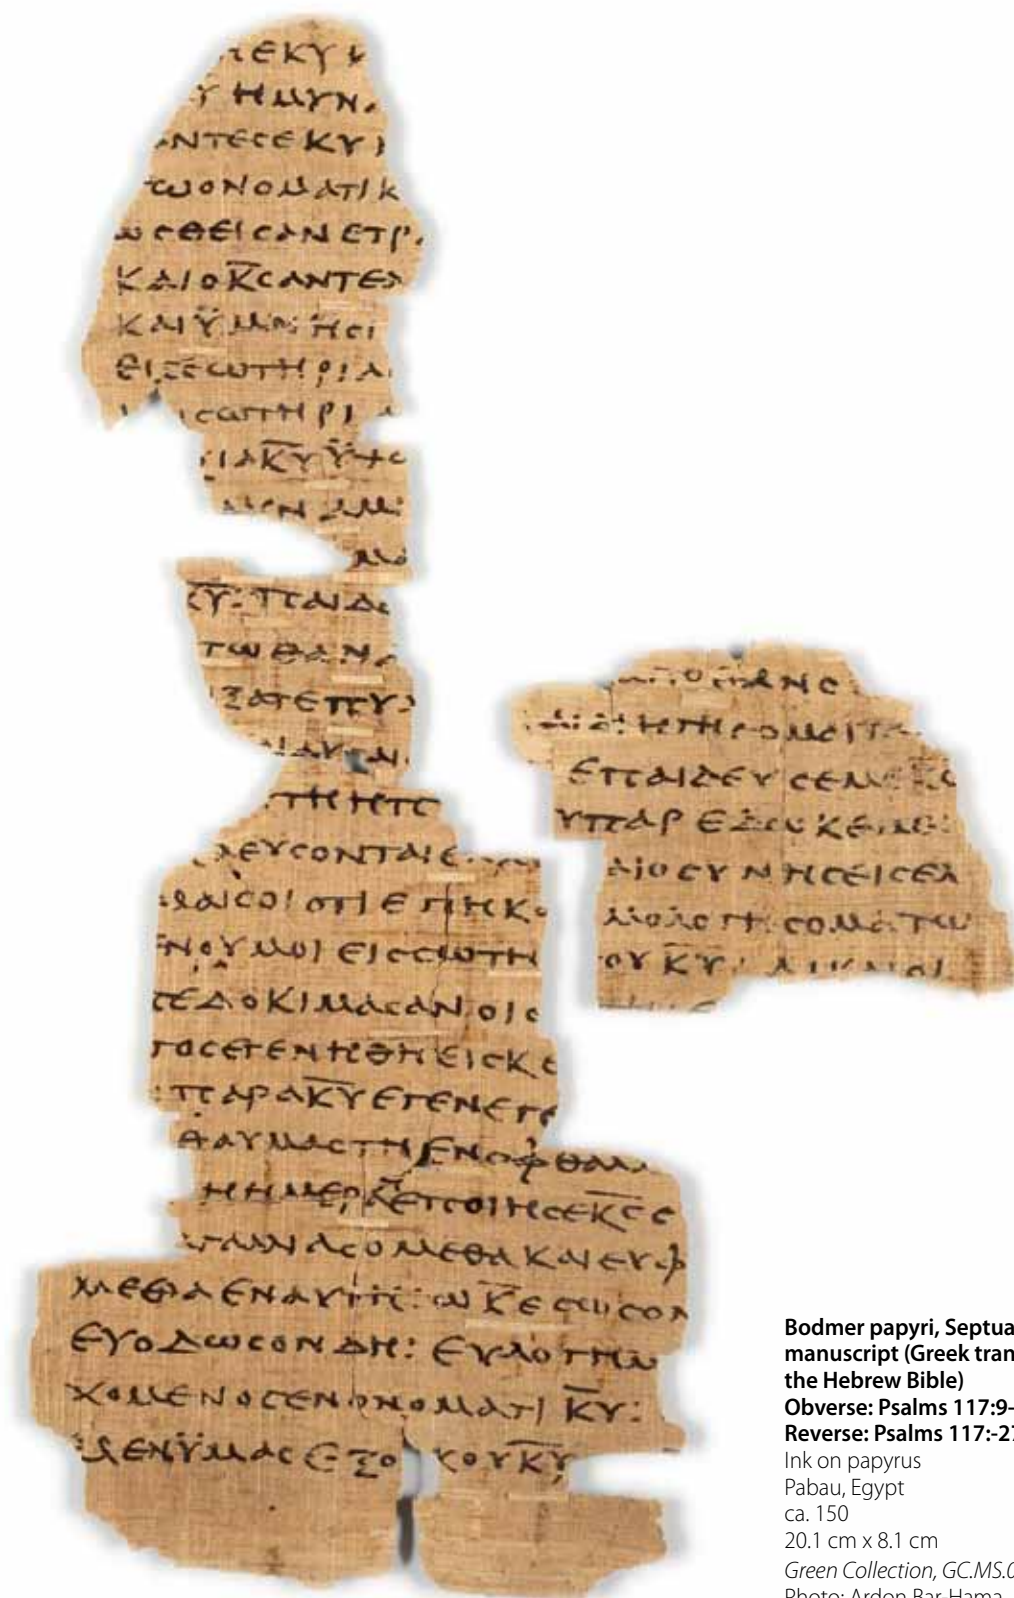 ΕΚΥΚ
Υ ΗΜΥΝΑ
ΑΝΤΕϹΕΚΥΚ
ΤΩΟΝΟΜΑΤΙΚ
ΩϹΘΕΙϹΑΝΕΤΡ
ΚΑΙΟΚ̅ϹΑΝΤΕΛ
ΚΑΙΫΜΝΗϹΙ
ΕΙϹϹΩΤΗΡΙΑ
ϹΩΤΗΡΙΑ
ΙΑΚ̅Υ̅ΫΨΩ
ΜΟ
Κ̅Υ̅: ΠΑΙΔΕ
ΤΩΘΑΝΑ
ΙΞΑΤΕΠΥΛ
ΤΗΗΠΥ
ΛΕΥϹΟΝΤΑΙΕ
ΜΑΙϹΟΙΟΤΙΕΠΗΚΟ
ΕΝΟΥΜΟΙΕΙϹϹΩΤΗ
ΠΕΔΟΚΙΜΑϹΑΝΟΙΟ
ΓΟϹΕΓΕΝΗΘΗΕΙϹΚΕ
:ΠΑΡΑΚ̅Υ̅ΕΓΕΝΕΤΟ
ΘΑΥΜΑϹΤΗΕΝΟΦΘΑΛΜ
ΗΗΜΕΡΑΕΠΟΙΗϹΕΚ̅Ϲ̅
ΑΓΑΛΛΙΑϹΟΜΕΘΑΚΑΙΕΥΦ
ΜΕΘΑΕΝΑΥΤΗ: ΩΚ̅Ε̅ϹΩϹΟΝ
ΕΥΟΔΩϹΟΝΔΗ: ΕΥΛΟΓΗΜ
ΧΟΜΕΝΟϹΕΝΟΝΟΜΑΤΙΚ̅Υ̅:
ΚΕΝΫΜΑϹΕΞΟΙΚΟΥΚ̅Υ̅
ΕΠΑΙΔΕΥϹΕΜΕ
ΥΠΑΡΕΔΩΚΕΜΕ
ΑΙΟϹΥΝΗϹΕΙϹΕΛ
ΜΟΛΟΓΗϹΟΜΕΤΩ
ΟΥΚ̅Υ̅: ΔΙΚΑΙΟΙ
Bodmer papyri, Septua
manuscript (Greek tran
the Hebrew Bible)
Obverse: Psalms 117:9-
Reverse: Psalms 117:-27
Ink on papyrus
Pabau, Egypt
ca. 150
20.1 cm x 8.1 cm
Green Collection, GC.MS.0
Photo: Ardon Bar-Hama